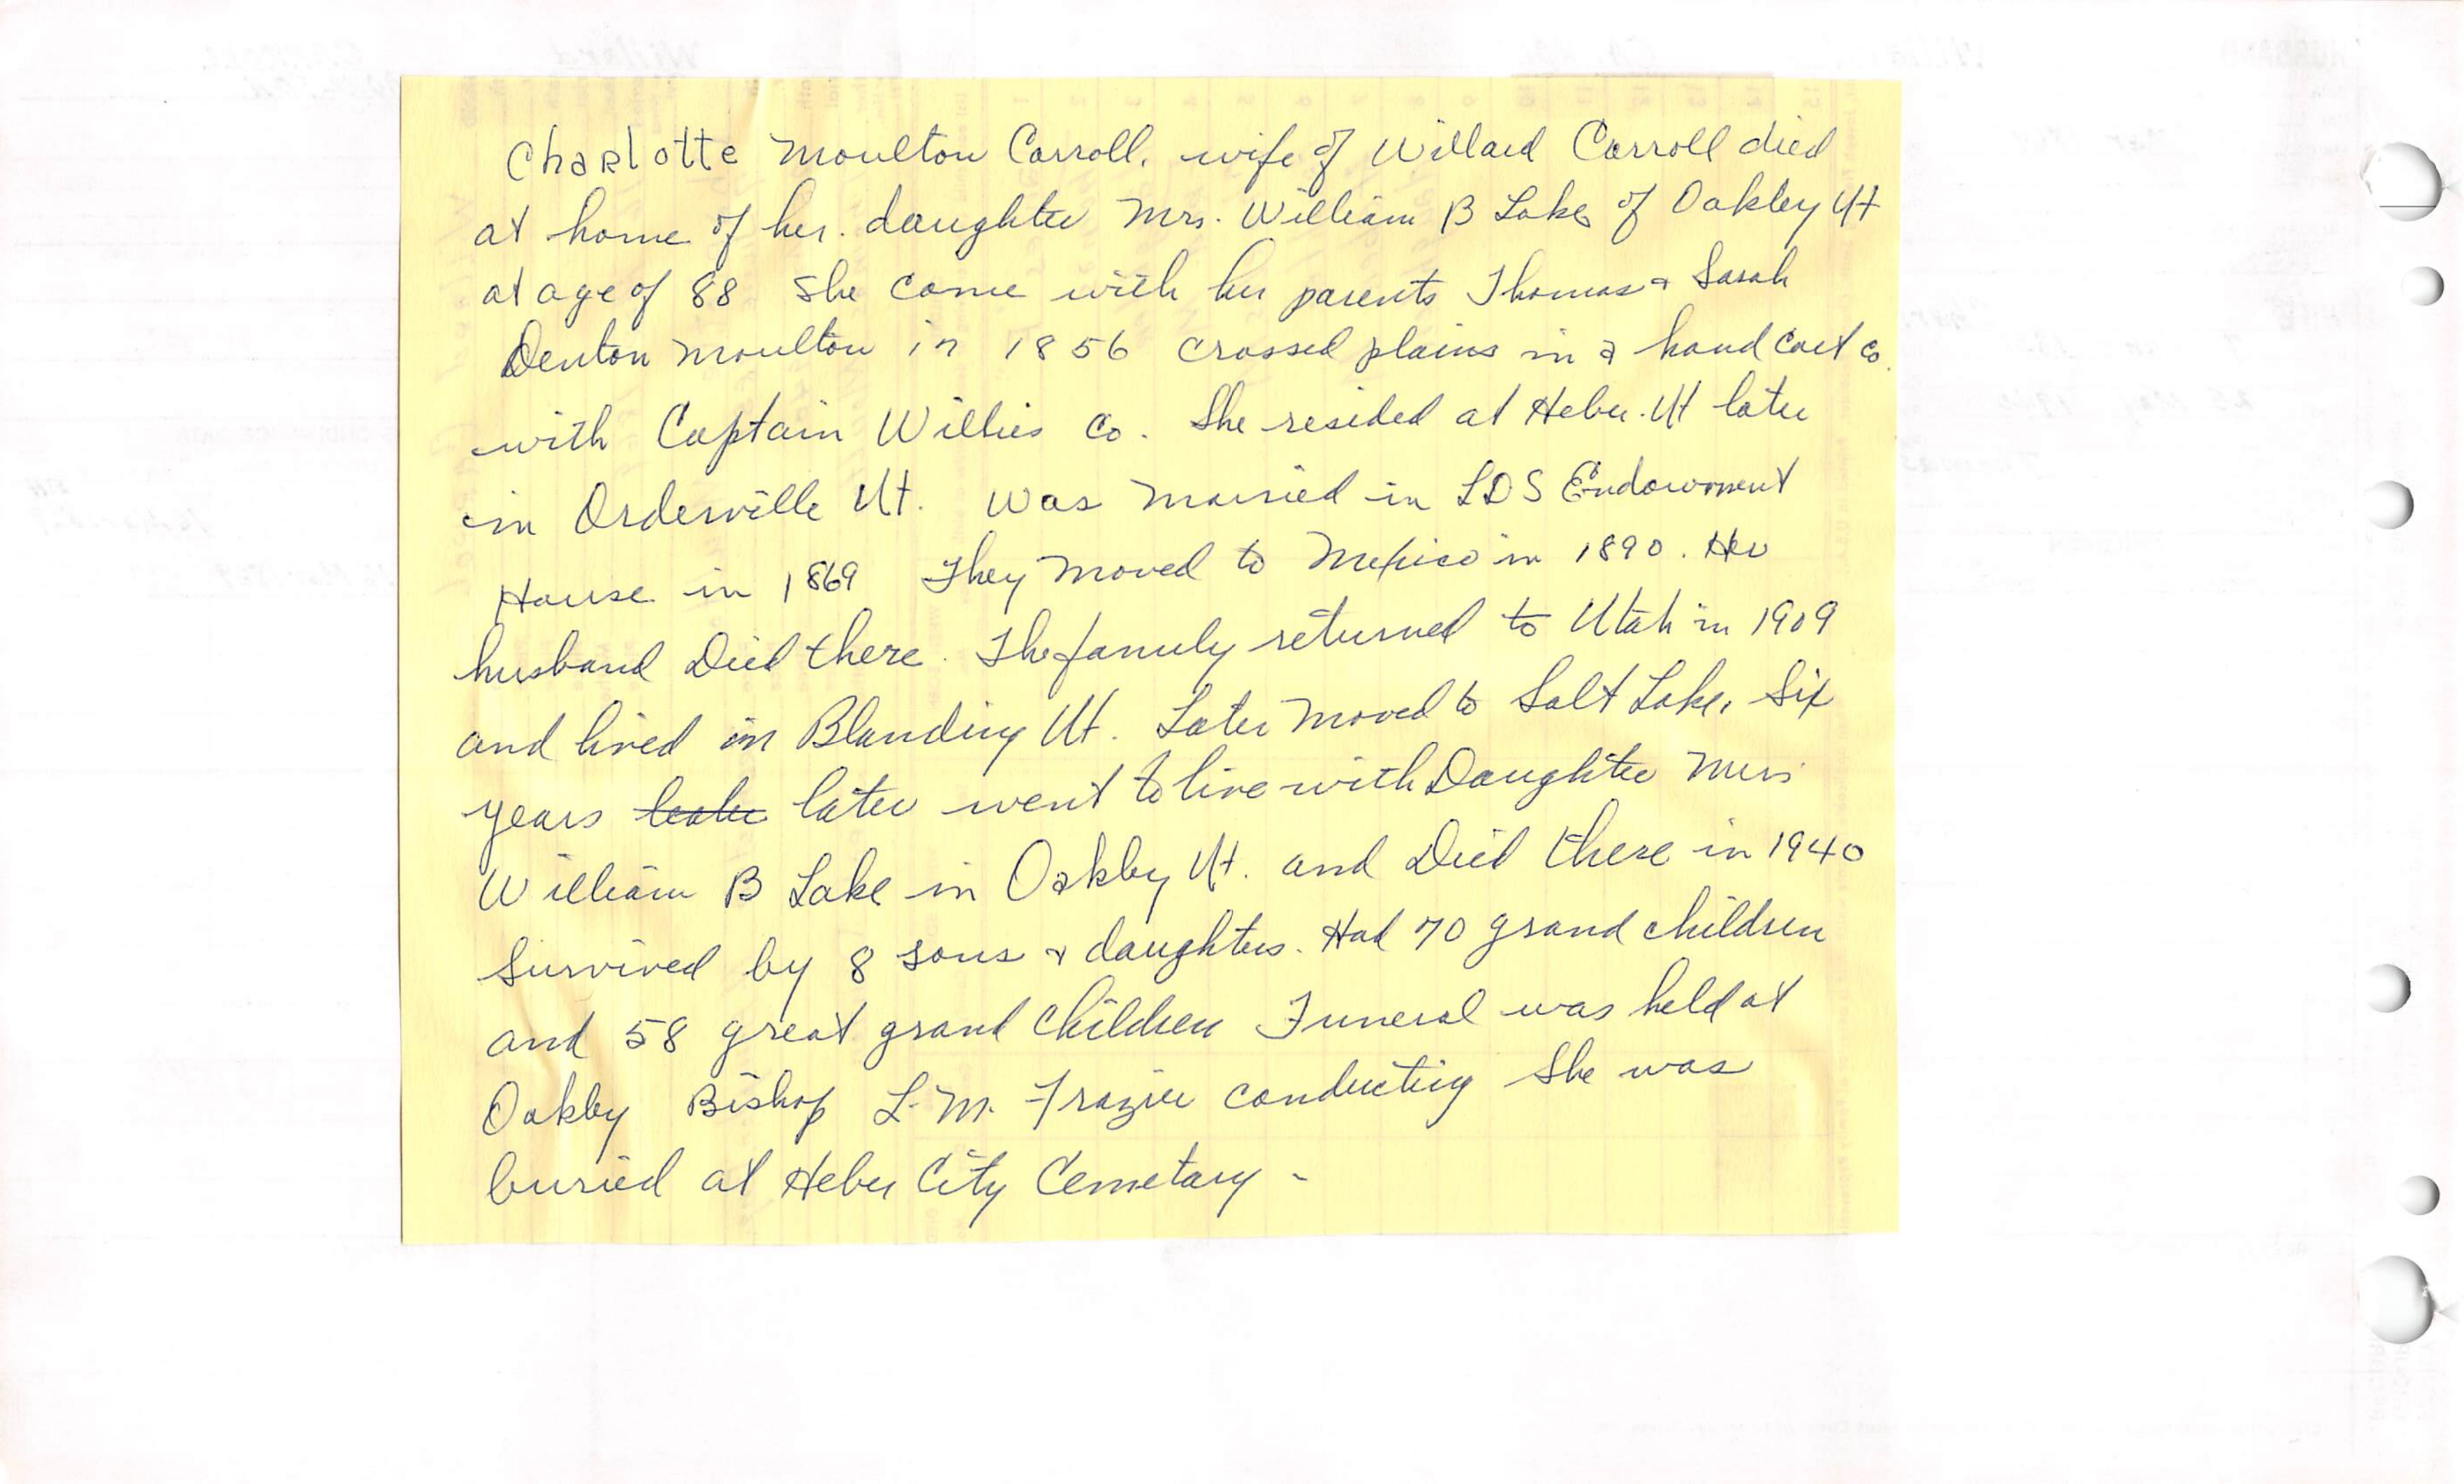 Charlotte Moulton Carroll, wife of Willard Carroll died
at home of her. daughter Mrs. William B Lake of Oakley Ut
at age of 88 She came with her parents Thomas & Sarah
Denton Moulton in 1856 crossed plains in a hand cart co.
with Captain Willies co. She resided at Heber. Ut later
in Orderville Ut. was married in LDS Endowment
House in 1869 They moved to Mexico in 1890. Her
husband Died there. The family returned to Utah in 1909
and lived in Blanding Ut. Later moved to Salt Lake, Six
years later went to live with Daughter Mrs
William B Lake in Oakley Ut. and Died there in 1940
Survived by 8 sons & daughters. Had 70 grand children
and 58 great grand children Funeral was held at
Oakley Bishop L. M. Frazier conducting She was
buried at Heber City Cemetary -